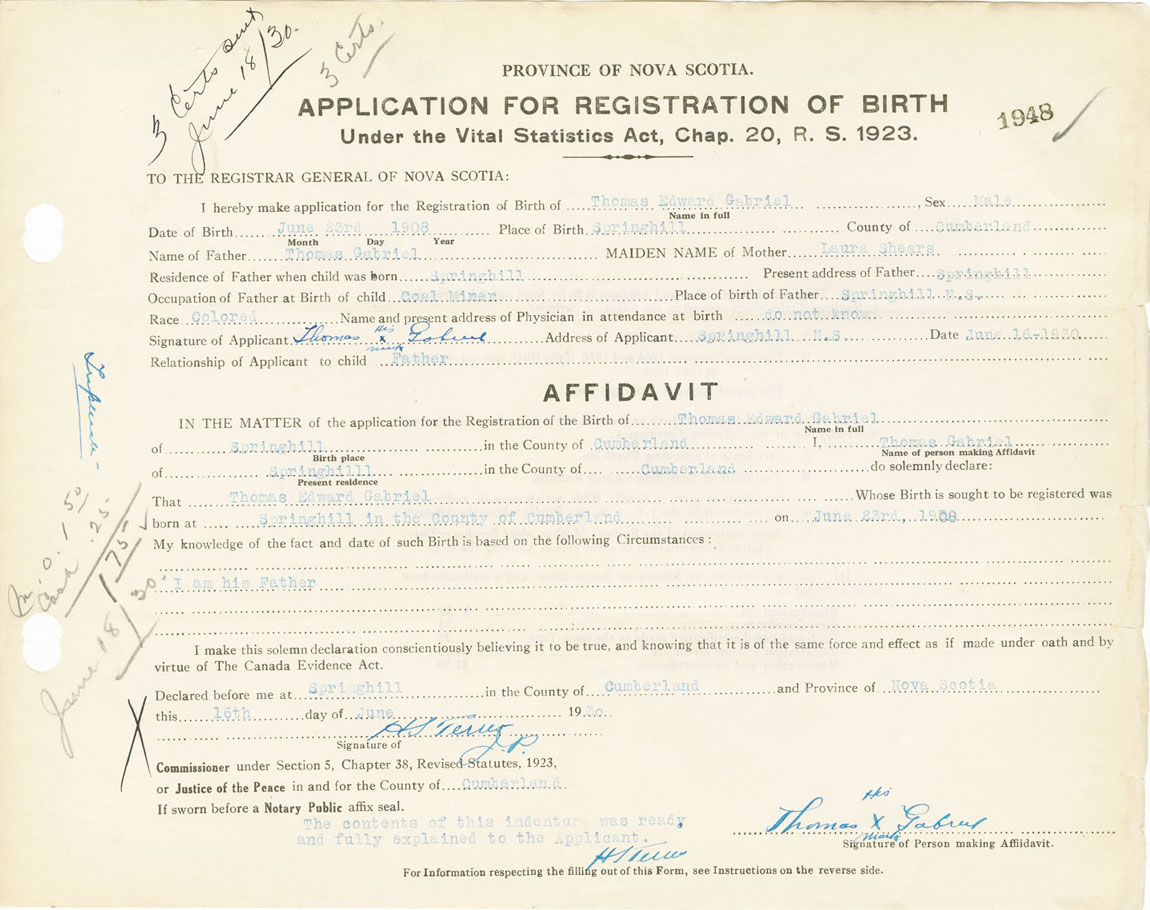 3 Certs sent
June 18/30.
3 Certs.
PROVINCE OF NOVA SCOTIA.
APPLICATION FOR REGISTRATION OF BIRTH
1948
Under the Vital Statistics Act, Chap. 20, R. S. 1923.
TO THE REGISTRAR GENERAL OF NOVA SCOTIA:
I hereby make application for the Registration of Birth of Thomas Edward Gabriel, Sex Male
Name in full
Date of Birth June 23rd 1908 Place of Birth Springhill County of Cumberland
Month Day Year
Name of Father Thomas Gabriel MAIDEN NAME of Mother Laura Shears
Residence of Father when child was born Springhill Present address of Father Springhill
Occupation of Father at Birth of child Coal Miner Place of birth of Father Springhill N.S.
Race Colored Name and present address of Physician in attendance at birth do not know
Signature of Applicant Thomas His x mark Gabriel Address of Applicant Springhill N.S. Date June 16-1930
Relationship of Applicant to child Father
AFFIDAVIT
IN THE MATTER of the application for the Registration of the Birth of Thomas Edward Gabriel
Name in full
of Springhill in the County of Cumberland I, Thomas Gabriel
Birth place Name of person making Affidavit
of Springhilll in the County of Cumberland do solemnly declare:
Present residence
That Thomas Edward Gabriel Whose Birth is sought to be registered was
born at Springhill in the County of Cumberland on June 23rd, 1908
My knowledge of the fact and date of such Birth is based on the following Circumstances:
I am his Father
M.O. 1.50
Cash .25
1.75
June 18/30.
I make this solemn declaration conscientiously believing it to be true, and knowing that it is of the same force and effect as if made under oath and by
virtue of The Canada Evidence Act.
Declared before me at Springhill in the County of Cumberland and Province of Nova Scotia
this 16th day of June 1930.
J.P.
Signature of
Commissioner under Section 5, Chapter 38, Revised Statutes, 1923,
or Justice of the Peace in and for the County of Cumberland
If sworn before a Notary Public affix seal.
The contents of this indenture was ready
and fully explained to the Applicant.
Thomas His X mark Gabriel
Signature of Person making Affidavit.
For Information respecting the filling out of this Form, see Instructions on the reverse side.